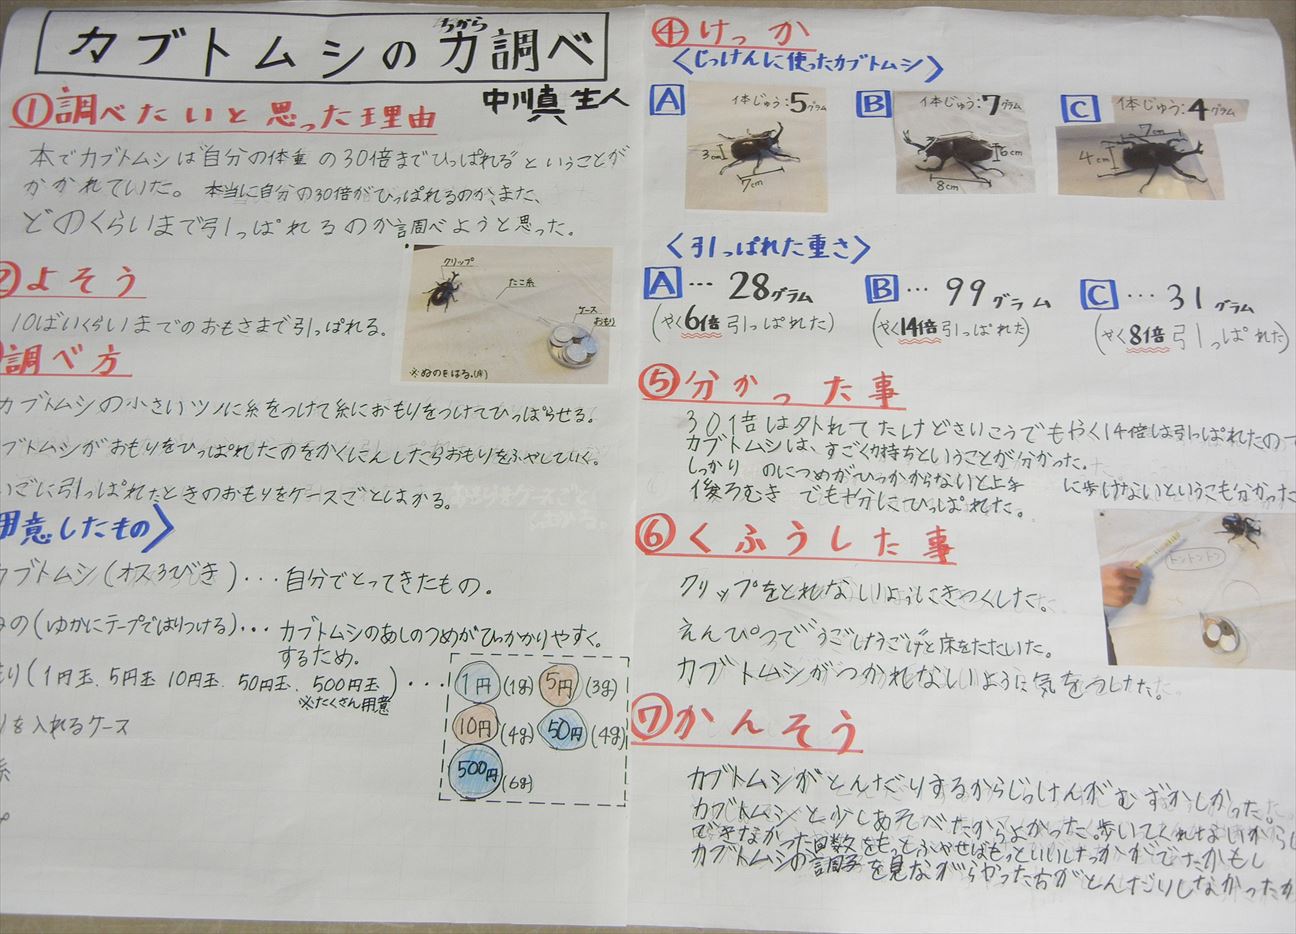 カブトムシの力調べ
ちから
中川真生人
①調べたいと思った理由
本でカブトムシは"自分の体重の30倍までひっぱれる"ということが
かかれていた。本当に自分の30倍がひっぱれるのか、また、
どのくらいまで引っぱれるのか調べようと思った。
②よそう
10ばいくらいまでのおもさまで引っぱれる。
クリップ
たこ糸
ケース
おもり
※ぬのをはる。
調べ方
カブトムシの小さいツノに糸をつけて糸におもりをつけてひっぱらせる。
ブトムシがおもりをひっぱれたのをかくにんしたらおもりをふやしていく。
いごに引っぱれたときのおもりをケースごとはかる。
用意したもの〉
カブトムシ(オス3びき)・・・自分でとってきたもの。
の(ゆかにテープではりつける)・・・カブトムシのあしのつめがひっかかりやすく。
するため。
もり(1円玉、5円玉、10円玉、50円玉、500円玉)・・・
※たくさん用意
1円(1g) 5円(3g)
10円(4g) 50円(4g)
500円(6g)
を入れるケース
糸
④けっか
〈じっけんに使ったカブトムシ〉
A 体じゅう:5グラム
3cm
7cm
B 体じゅう:7グラム
6cm
8cm
C 体じゅう:4グラム
7cm
4cm
〈引っぱれた重さ〉
A…28グラム
(やく6倍引っぱれた)
B…99グラム
(やく14倍引っぱれた)
C…31グラム
(やく8倍引っぱれた)
⑤分かった事
30倍は外れてたけどさいこうでもやく14倍は引っぱれたので
カブトムシは、すごく力持ちということが分かった。
しっかり のにつめがひっかからないと上手 に歩けないというこも分かった
後ろむき でも十分にひっぱれた。
⑥くふうした事
クリップをとれないようにきつくした。
えんぴつで"うごけうごけ"と床をたたいた。
カブトムシがつかれないように気をつしたた。
トントントン
⑦かんそう
カブトムシがとんだりするからじっけんがむずかしかった。
カブトムシと少しあそべたからよかった。歩いてくれないから
できなかった回数をもっとふやせばもっといいけっかがでたかもし
カブトムシの調子を見ながらやった方がとんだりしなかったか